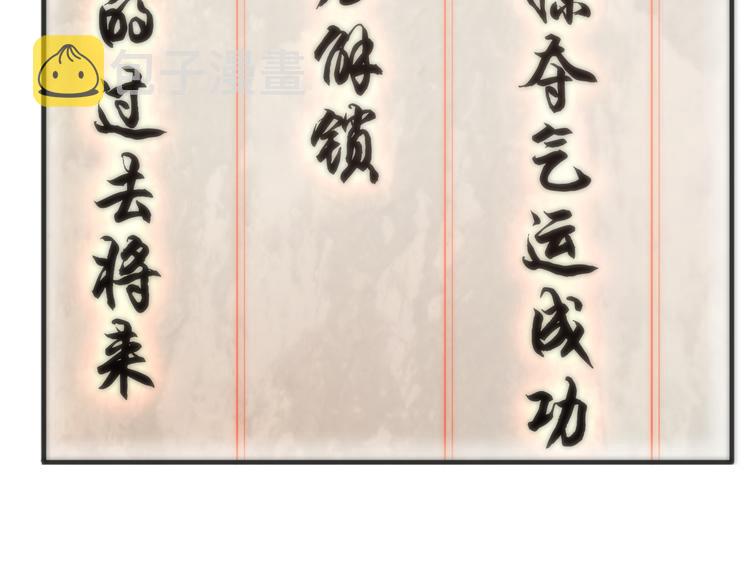 夺气运成功
解锁
的过去将来
包子漫畫